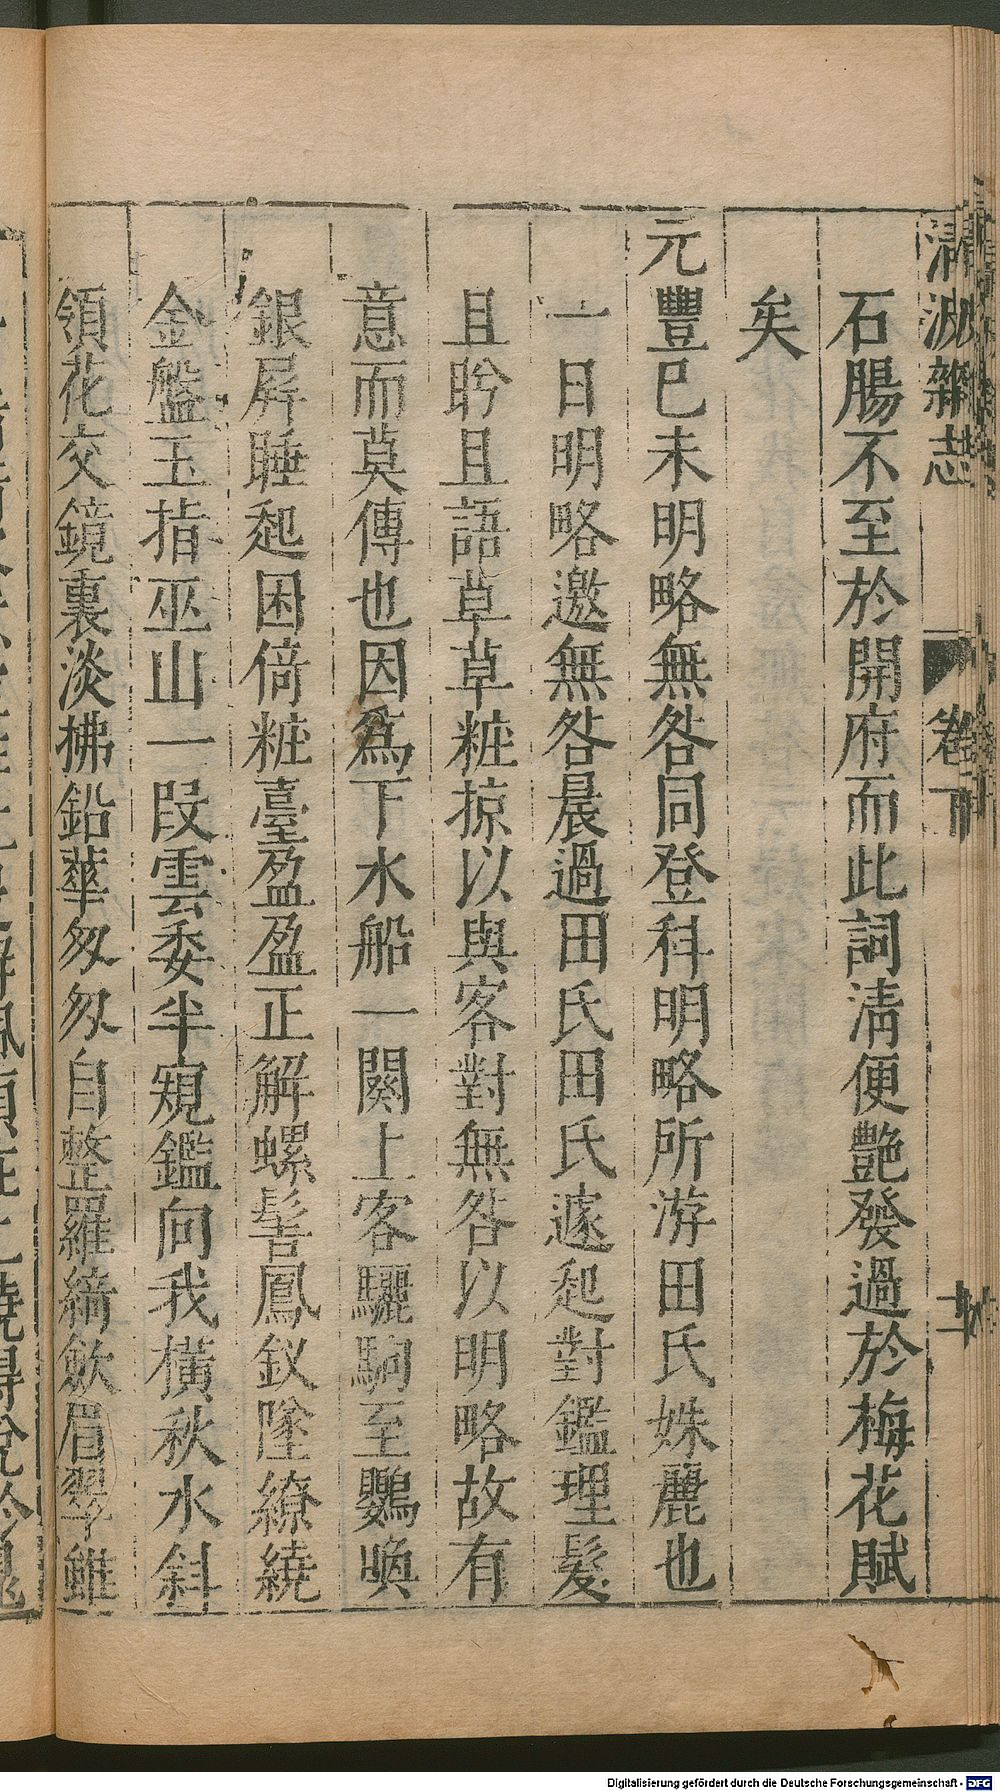 清波雜志 卷下
石腸不至於開府而此詞清便艷發過於梅花賦
矣
元豐已未明略無咎同登科明略所游田氏姝麗也
一日明略邀無咎晨過田氏田氏遽起對鑑理髮
且盻且語草草粧掠以與客對無咎以明略故有
意而莫傳也因爲下水船一闋上客驪駒至鸚喚
銀屛睡起困倚粧臺盈盈正解螺髻鳳釵墜繚繞
金盤玉指巫山一段雲委半窺鑑向我橫秋水斜
領花交鏡裏淡拂鉛華匆匆自整羅綺歛眉翠雖
Digitalisierung gefördert durch die Deutsche Forschungsgemeinschaft - DFG